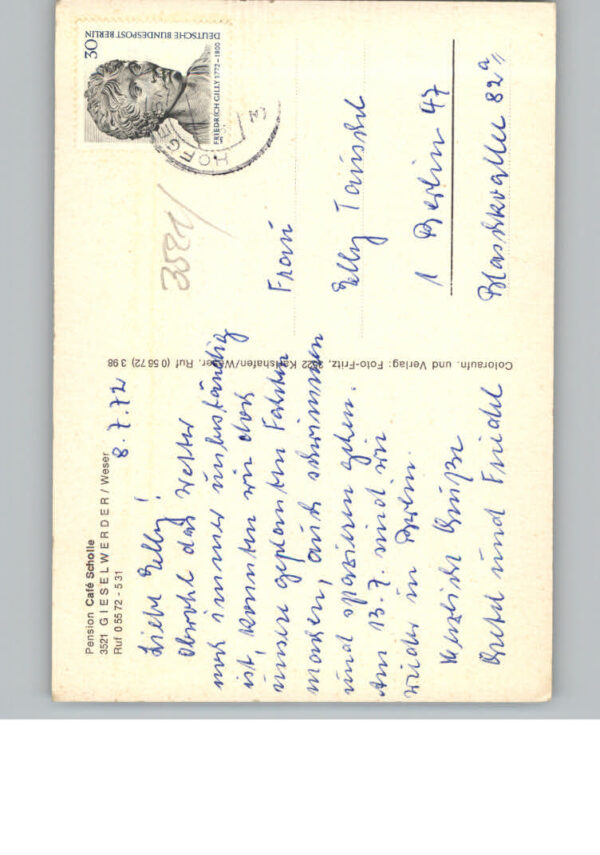 Pension Café Scholle
3521 GIESELWERDER / Weser
Ruf 0 55 72 - 5 31
8.7.72
Liebe Elly!
Obwohl das Wetter
noch immer unbeständig
ist, konnten wir doch
unsere geplanten Fahrten
machen, auch schwimmen
und spazieren gehen.
Am 13.7. sind wir
wieder in Berlin.
Herzliche Grüße
Gretel und Friedel
Coloraufn. und Verlag: Foto-Fritz, 3522 Karlshafen/Weser. Ruf (0 56 72) 3 98
DEUTSCHE BUNDESPOST BERLIN
30
FRIEDRICH GILLY 1772-1800
HOFGE
3521/
Frau
Elly
1 Berlin 47
Blaschkoallee 82a